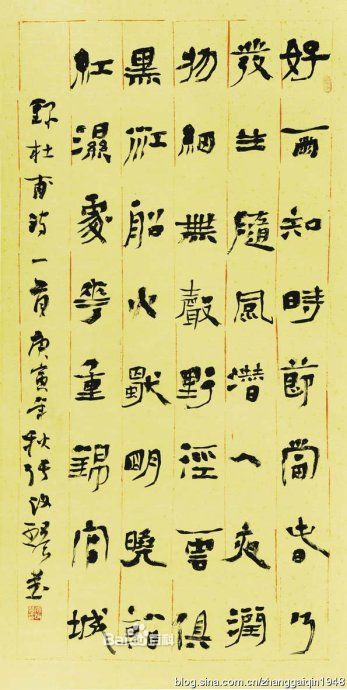 好雨知時節當春乃
發生隨風潛入夜潤
物細無聲野徑雲俱
黑江船火獨明曉看
紅濕處華重錦官城
録杜甫詩一首庚寅年秋張改琴書
Baidu百科
blog.sina.com.cn/zhanggaiqin1948